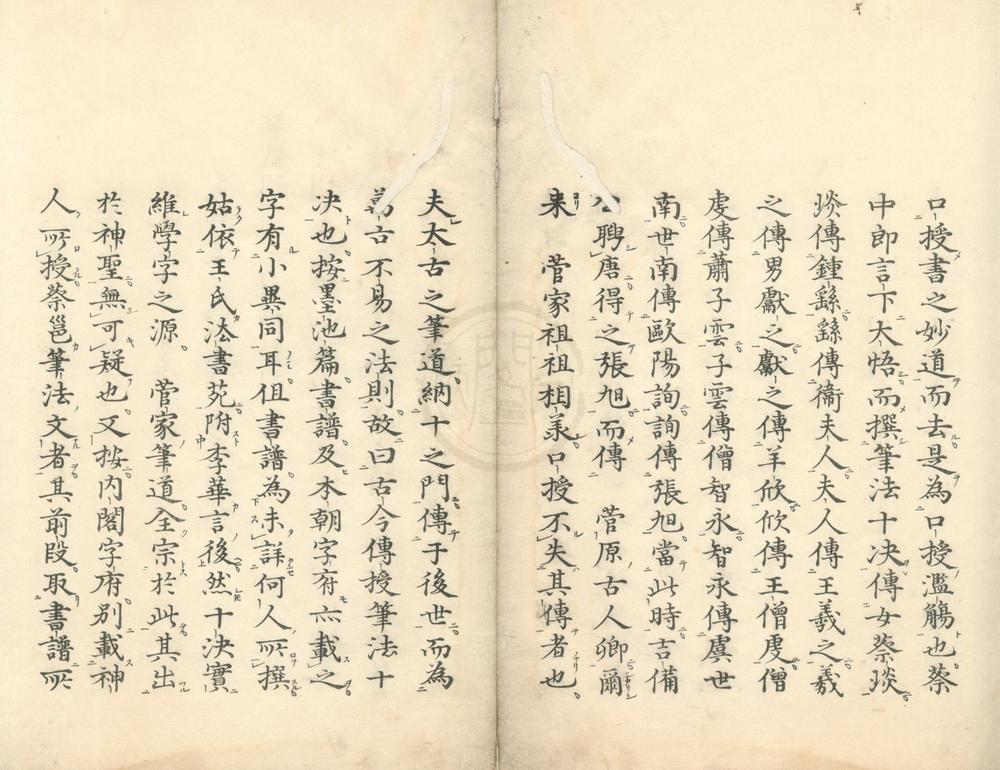 口授書之妙道而去是為口授濫觴也蔡
中郎言下大悟而撰筆法十决傳女蔡琰
琰傳鍾繇繇傳衞夫人夫人傳王羲之羲
之傳男獻之獻之傳羊欣欣傳王僧虔僧
虔傳蕭子雲子雲傳僧智永智永傳虞世
南世南傳歐陽詢詢傳張旭當此時吉備
公聘唐得之張旭而傳　菅原古人卿爾
来　菅家祖祖相羕口授不失其傳者也
夫太古之筆道納十之門傳于後世而為
萬古不易之法則故曰古今傳授筆法十
决也按墨池篇書譜及本朝字府亦載之
字有小異同耳但書譜為未詳何人所撰
姑依王氏法書苑附李華言後然十决實
維學字之源　菅家筆道全宗於此其出
於神聖無可疑也又按内閣字府别載神
人所授蔡邕筆法文者其前段取書譜所